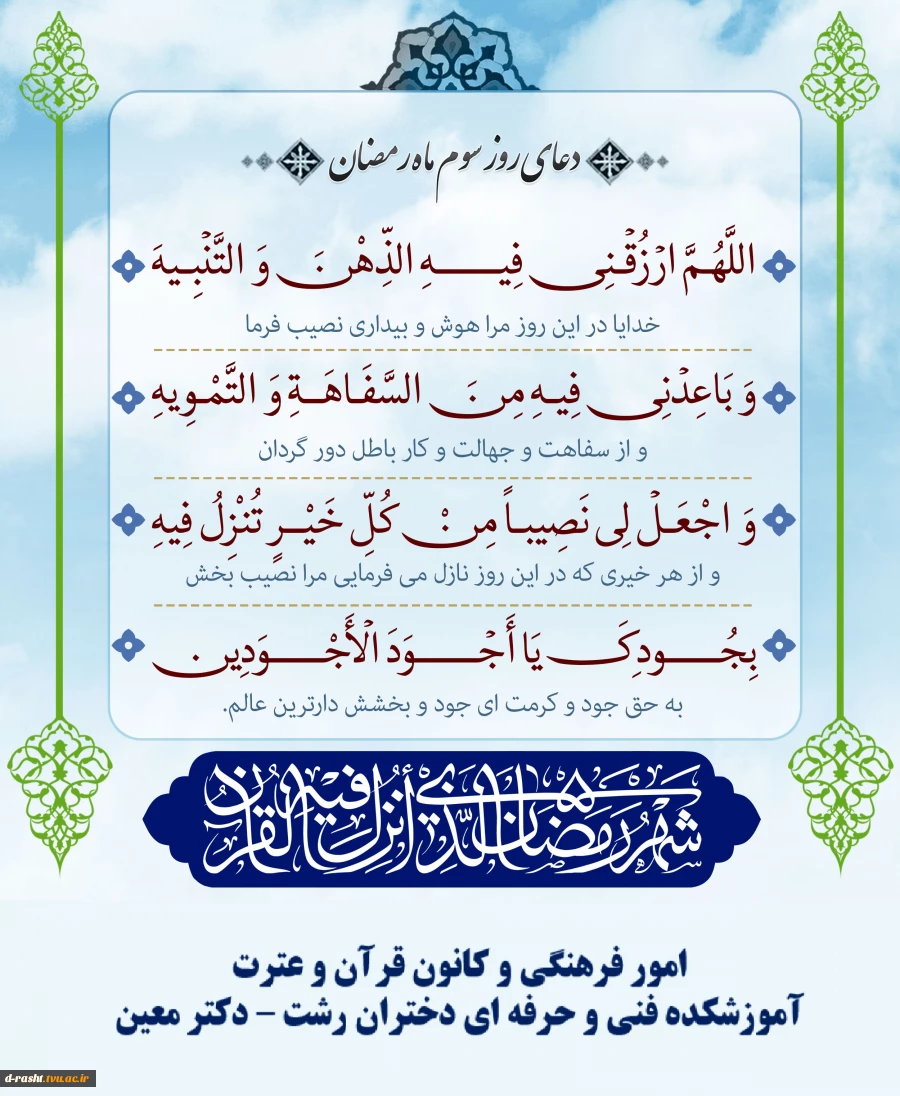 دعای روز سوم ماه رمضان
اللَّهُمَّ ارْزُقْنِی فِیهِ الذِّهْنَ وَ التَّنْبِیهَ
خدایا در این روز مرا هوش و بیداری نصیب فرما
وَ بَاعِدْنِی فِیهِ مِنَ السَّفَاهَةِ وَ التَّمْوِیهِ
و از سفاهت و جهالت و کار باطل دور گردان
وَ اجْعَلْ لِی نَصِیباً مِنْ کُلِّ خَیْرٍ تُنْزِلُ فِیهِ
و از هر خیری که در این روز نازل می فرمایی مرا نصیب بخش
بِجُودِکَ یَا أَجْوَدَ الْأَجْوَدِین
به حق جود و کرمت ای جود و بخشش دارترین عالم.
شهر رمضان الذی أنزل فیه القرآن
امور فرهنگی و کانون قرآن و عترت
آموزشکده فنی و حرفه ای دختران رشت - دکتر معین
d-rasht.tvu.ac.ir